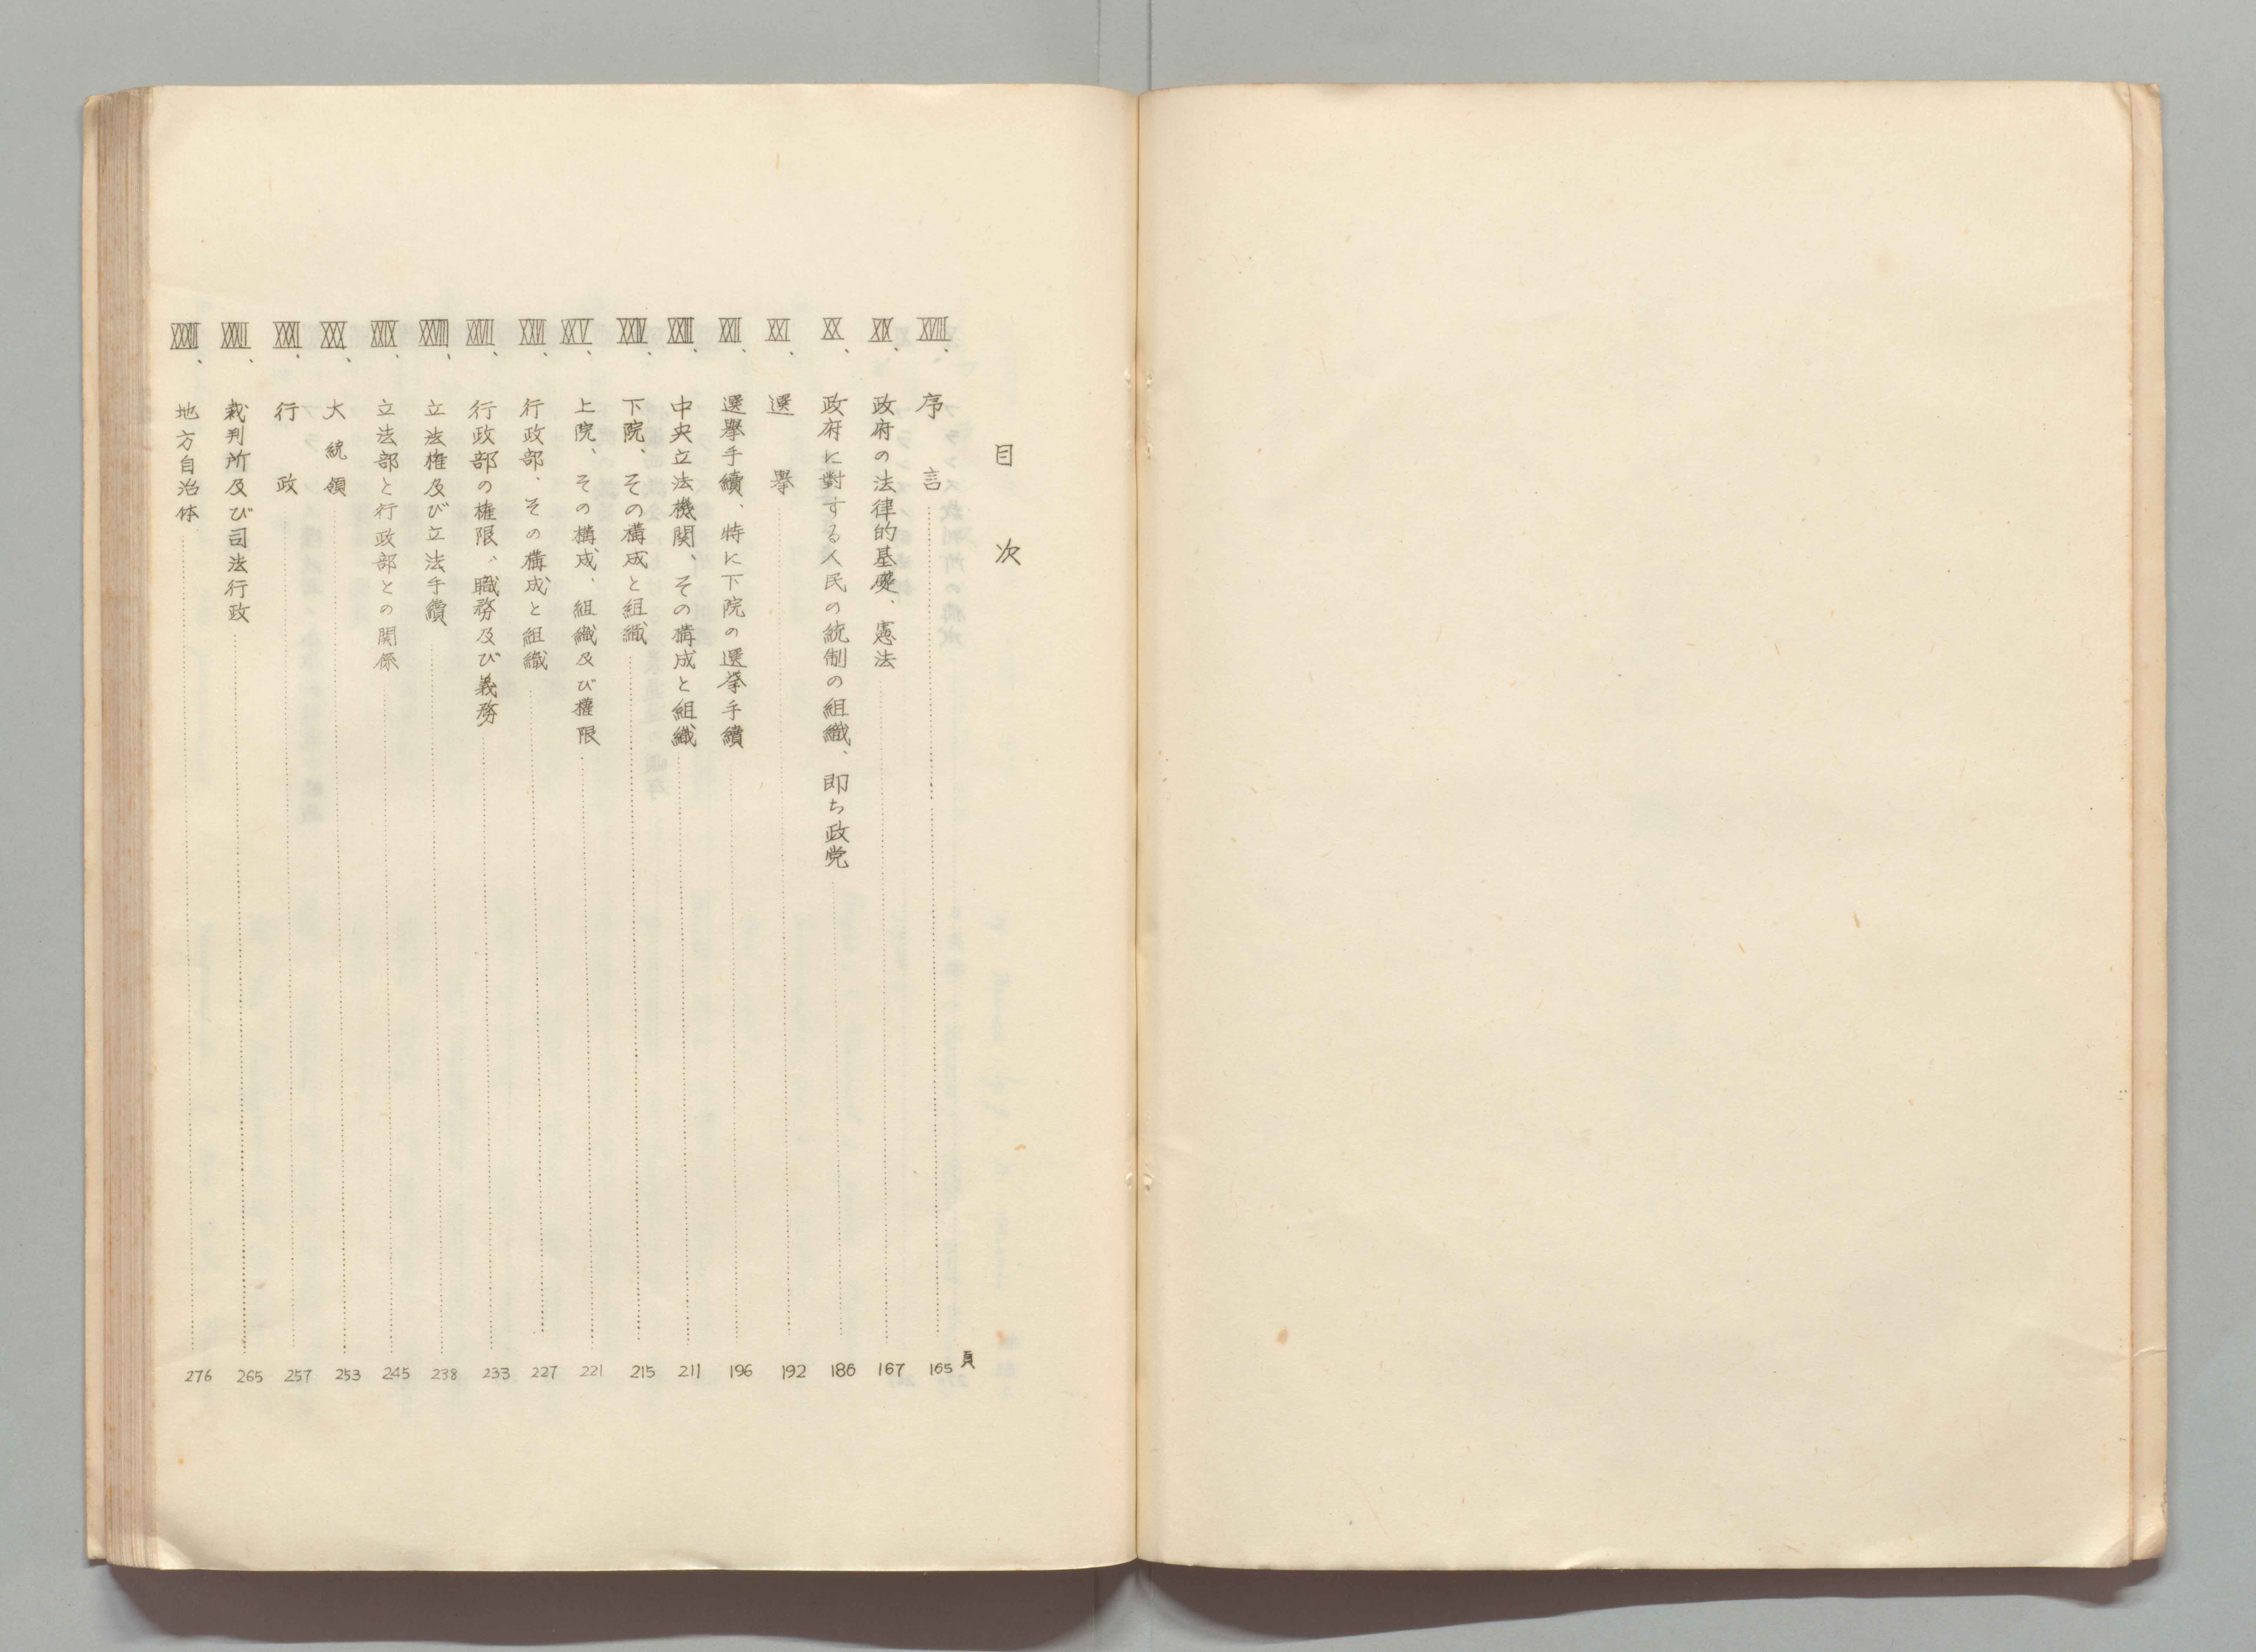 目次
頁
XVIII、序言 165
XIX、政府の法律的基礎、憲法 167
XX、政府に對する人民の統制の組織、即ち政党 186
XXI、選擧 192
XXII、選擧手續、特に下院の選挙手續 196
XXIII、中央立法機関、その構成と組織 211
XXIV、下院、その構成と組織 215
XXV、上院、その構成、組織及び權限 221
XXVI、行政部、その構成と組織 227
XXVII、行政部の権限、職務及び義務 233
XXVIII、立法権及び立法手續 238
XXIX、立法部と行政部との関係 245
XXX、大統領 253
XXXI、行政 257
XXXII、裁判所及び司法行政 265
XXXIII、地方自治体 276